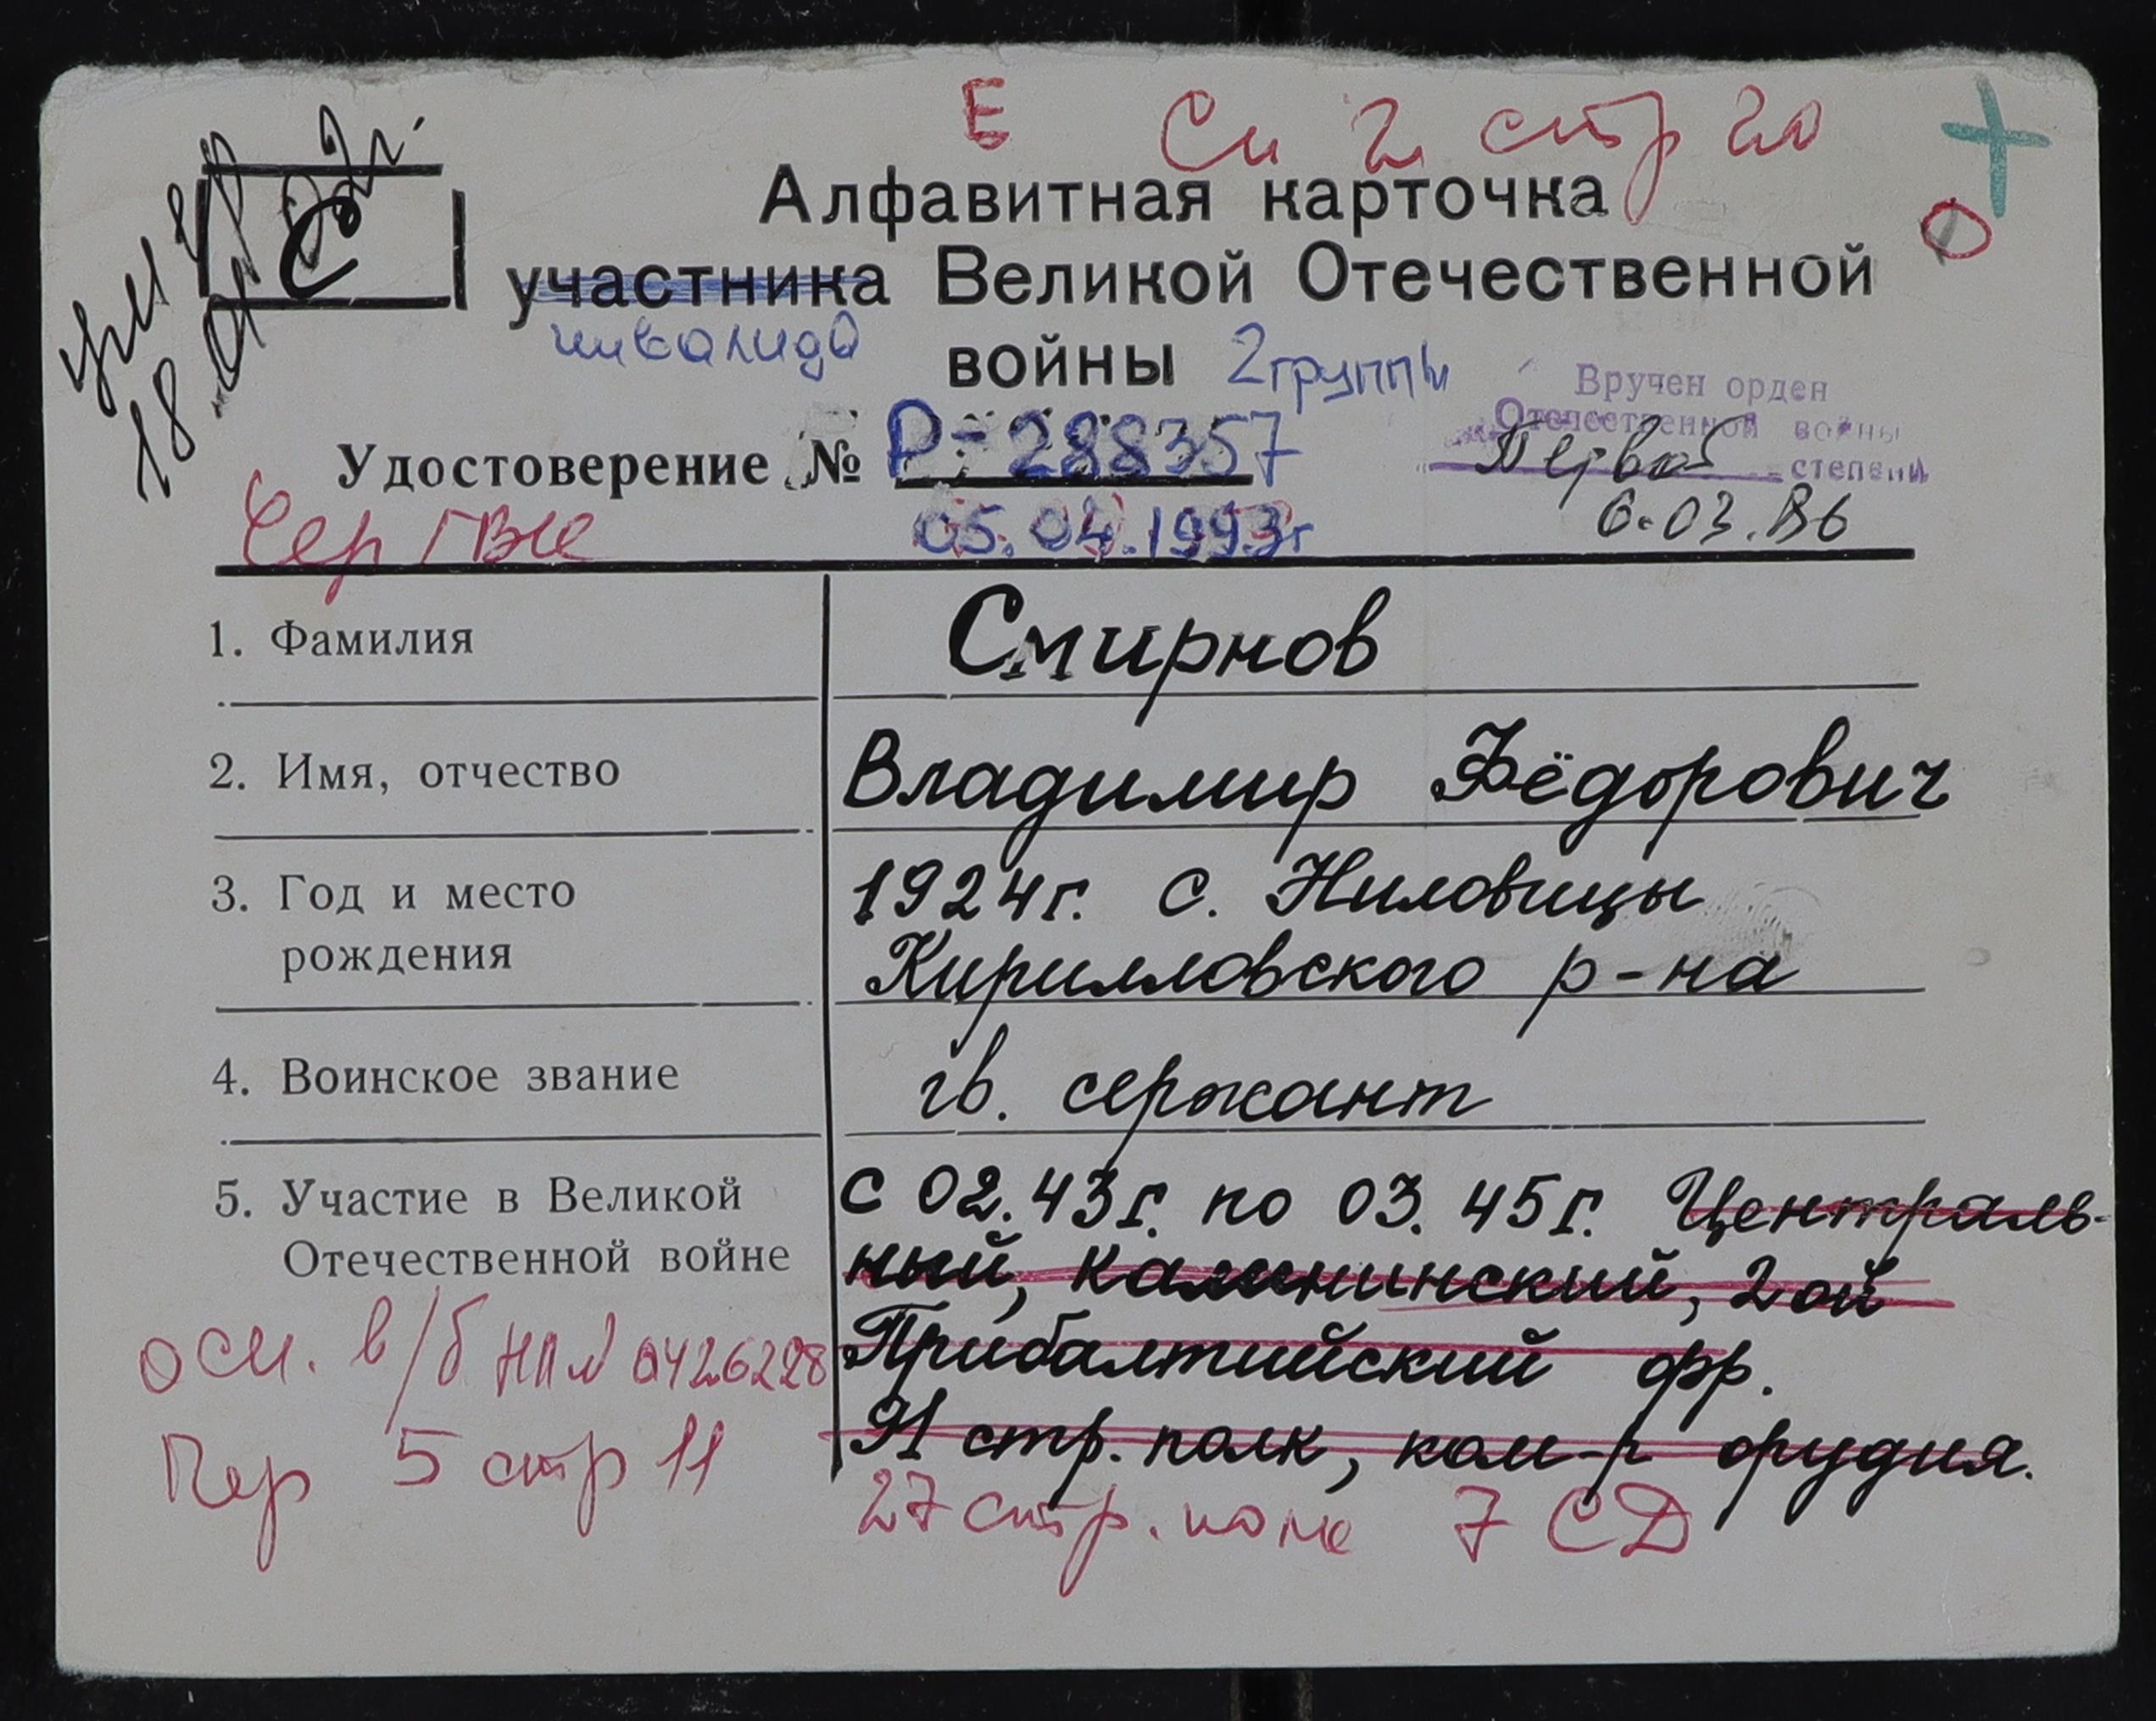 Е Сп 2 стр 20
умер
18.01.02г.
С
Алфавитная карточка
участника Великой Отечественной
инвалида войны 2 группы
Вручен орден
Отечественной войны
Первой степени
6.03.86
Удостоверение № Р-288357
05.04.1993г
1. Фамилия Смирнов
2. Имя, отчество Владимир Фёдорович
3. Год и место 1924г. с. Ниловицы
рождения Кирилловского р-на
4. Воинское звание гв. сержант
5. Участие в Великой с 02.43г. по 03.45г. Централь-
Отечественной войне ный, Калининский, 2ой
осн. в/б НП № 0426228 Прибалтийский фр.
91 стр. полк, ком-р орудия.
Пер 5 стр 11
27 стр. полк 7 СД